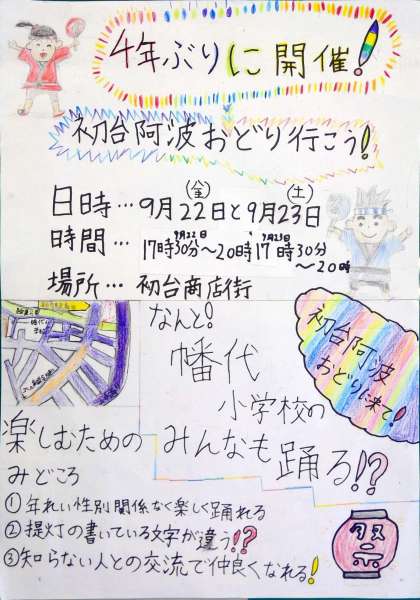 4年ぶりに開催!
初台阿波おどり行こう!
日時…9月22日(金)と9月23日(土)
時間…9月22日17時30分〜20時 9月23日17時30分〜20時
場所…初台商店街
なんと!
幡代
小学校の
みんなも踊る!?
初台阿波
おどりに来て!
楽しむための
みどころ
①年れい性別関係なく楽しく踊れる
②提灯の書いている文字が違う!?
③知らない人との交流で仲良くなれる!
祭